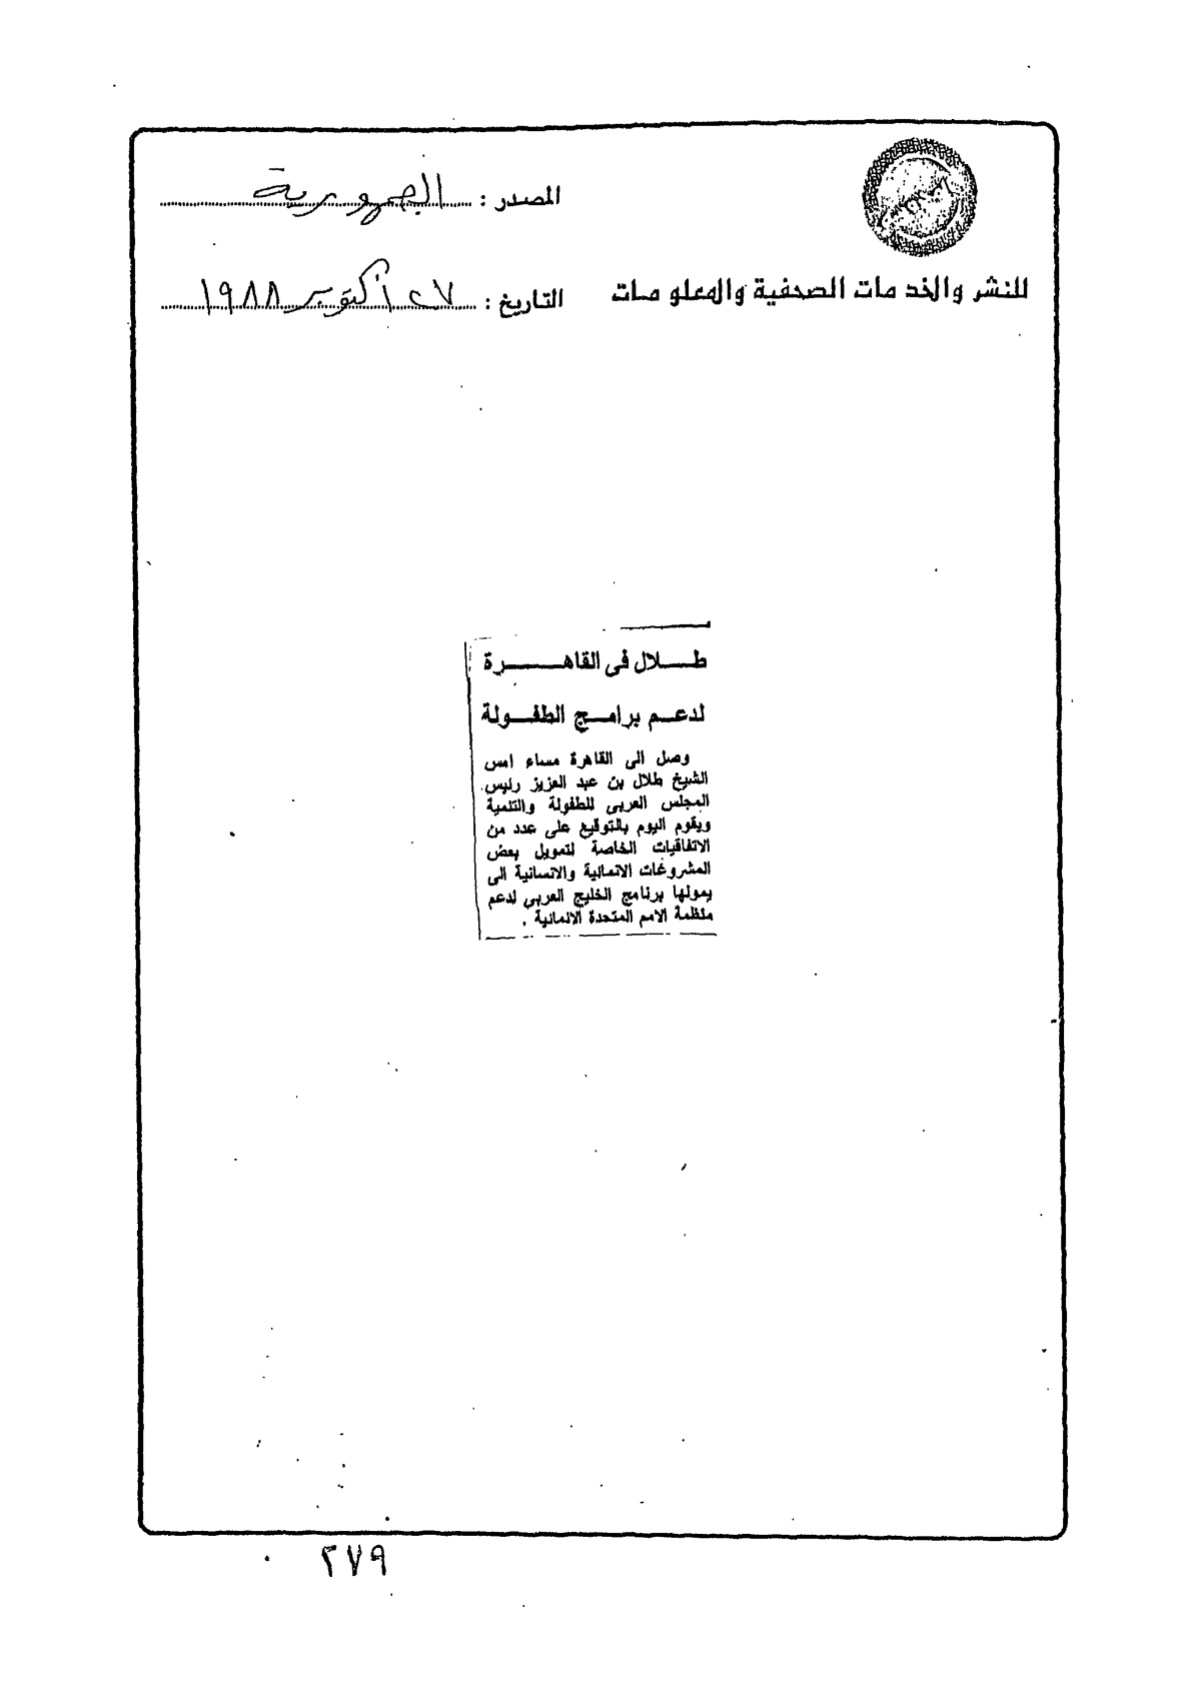 المصدر : الجمهورية
للنشر والخدمات الصحفية والمعلومات
التاريخ : ٢٧ أكتوبر ١٩٨٨
طلال فى القاهرة
لدعم برامج الطفولة
وصل الى القاهرة مساء امس
الشيخ طلال بن عبد العزيز رئيس
المجلس العربى للطفولة والتنمية
ويقوم اليوم بالتوقيع على عدد من
الاتفاقيات الخاصة لتمويل بعض
المشروعات الانمائية والانسانية الى
يمولها برنامج الخليج العربى لدعم
منظمة الامم المتحدة الانمائية .
٢٧٩